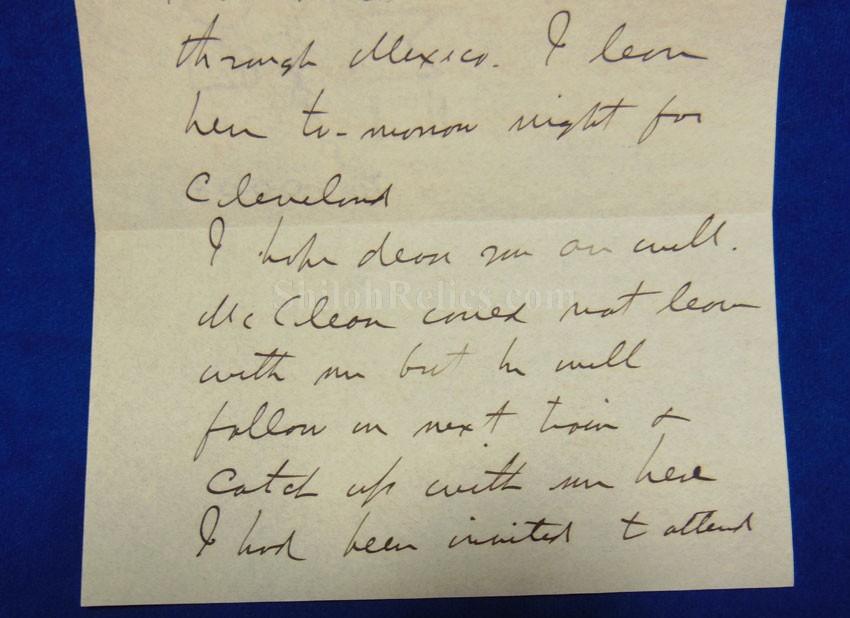 through Mexico. I leave
here to-morrow night for
Cleveland
I hope dear you are well.
ShilohRelics.com
McClean could not leave
with me but he will
follow on next train &
catch up with me here
I had been invited to attend